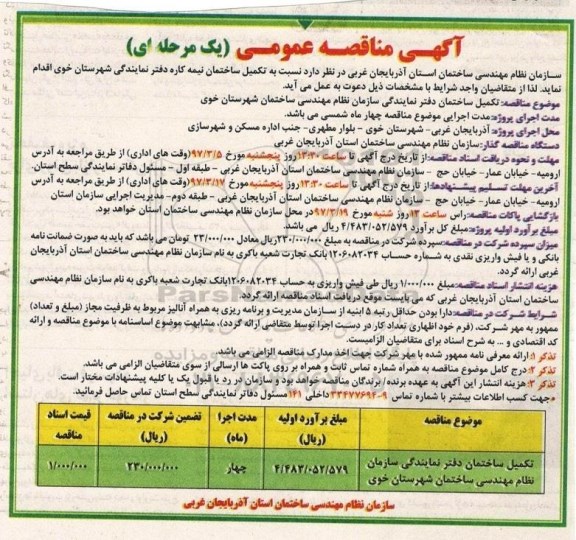 آگهی مناقصه عمومی (یک مرحله ای)
سازمان نظام مهندسی ساختمان استان آذربایجان غربی در نظر دارد نسبت به تکمیل ساختمان نیمه کاره دفتر نمایندگی شهرستان خوی اقدام
نماید. لذا از متقاضیان واجد شرایط با مشخصات ذیل دعوت به عمل می آید.
موضوع مناقصه: تکمیل ساختمان دفتر نمایندگی سازمان نظام مهندسی ساختمان شهرستان خوی
مدت اجرای پروژه: مدت اجرایی موضوع مناقصه چهار ماه شمسی می باشد.
محل اجرای پروژه: آذربایجان غربی - شهرستان خوی - بلوار مطهری- جنب اداره مسکن و شهرسازی
دستگاه مناقصه گذار: سازمان نظام مهندسی ساختمان استان آذربایجان غربی
مهلت و نحوه دریافت اسناد مناقصه: از تاریخ درج آگهی تا ساعت ۱۳:۳۰ روز پنجشنبه مورخ ۹۷/۳/۵ (وقت های اداری) از طریق مراجعه به آدرس
ارومیه- خیابان عمار- خیابان حج - سازمان نظام مهندسی ساختمان استان آذربایجان غربی - طبقه اول - مسئول دفاتر نمایندگی سطح استان.
آخرین مهلت تسلیم پیشنهادها: از تاریخ درج آگهی تا ساعت ۱۳:۳۰ روز پنجشنبه مورخ ۹۷/۳/۱۷ (وقت های اداری) از طریق مراجعه به آدرس
ارومیه- خیابان عمار- خیابان حج- سازمان نظام مهندسی ساختمان استان آذربایجان غربی - طبقه دوم- مدیریت اجرایی سازمان استان
بازگشایی پاکات مناقصه: راس ساعت ۱۳ روز شنبه مورخ ۹۷/۳/۱۹ در محل سازمان نظام مهندسی ساختمان استان خواهد بود.
مبلغ برآورد اولیه پروژه: مبلغ کل برآورد ۴/۴۸۳/۰۵۲/۵۷۹ ریال می باشد.
میزان سپرده شرکت در مناقصه: سپرده شرکت در مناقصه به مبلغ ۲۳۰/۰۰۰/۰۰۰ ریال معادل ۲۳/۰۰۰/۰۰۰ تومان می باشد که باید به صورت ضمانت نامه
بانکی و یا فیش واریزی نقدی به شماره حساب ۱۲۰۶۰۸۲۰۳۴ بانک تجارت شعبه باکری به نام سازمان نظام مهندسی ساختمان استان آذربایجان
غربی ارائه گردد.
هزینه انتشار اسناد مناقصه: مبلغ ۱/۰۰۰/۰۰۰ ریال طی فیش واریزی به حساب ۱۲۰۶۰۸۲۰۳۴ بانک تجارت شعبه باکری به نام سازمان نظام مهندسی
ساختمان استان آذربایجان غربی که می بایست موقع دریافت اسناد مناقصه ارائه گردد.
شرایط شرکت در مناقصه: دارا بودن حداقل رتبه ۵ ابنیه از سازمان مدیریت و برنامه ریزی به همراه آنالیز مربوط به ظرفیت مجاز (مبلغ و تعداد)
ممهور به مهر شرکت، (فرم خود اظهاری تعداد کار در دست اجرا توسط متقاضی ارائه گردد)، مشابهت موضوع اساسنامه با موضوع مناقصه و ارائه
کد اقتصادی و ... به شرح اسناد برای متقاضیان الزامیست.
تذکر ۱: ارائه معرفی نامه ممهور شده با مهر شرکت جهت اخذ مدارک مناقصه الزامی می باشد.
تذکر ۲: درج کامل موضوع مناقصه به همراه شماره تماس ثابت و همراه بر روی پاکت ها ارسالی از سوی متقاضیان الزامی می باشد.
تذکر ۳: هزینه انتشار این آگهی به عهده برنده/ برندگان مناقصه خواهد بود و سازمان در رد یا قبول یک یا کلیه پیشنهادات مختار است.
*جهت کسب اطلاعات بیشتر با شماره تماس ۹-۳۳۴۷۷۶۹۴ داخلی ۱۴۱ مسئول دفاتر نمایندگی سطح استان تماس حاصل فرمائید.
موضوع مناقصه | مبلغ برآورد اولیه (ریال) | مدت اجرا (ماه) | تضمین شرکت در مناقصه (ریال) | قیمت اسناد مناقصه
تکمیل ساختمان دفتر نمایندگی سازمان نظام مهندسی ساختمان شهرستان خوی | ۴/۴۸۳/۰۵۲/۵۷۹ | چهار | ۲۳۰/۰۰۰/۰۰۰ | ۱/۰۰۰/۰۰۰
سازمان نظام مهندسی ساختمان استان آذربایجان غربی